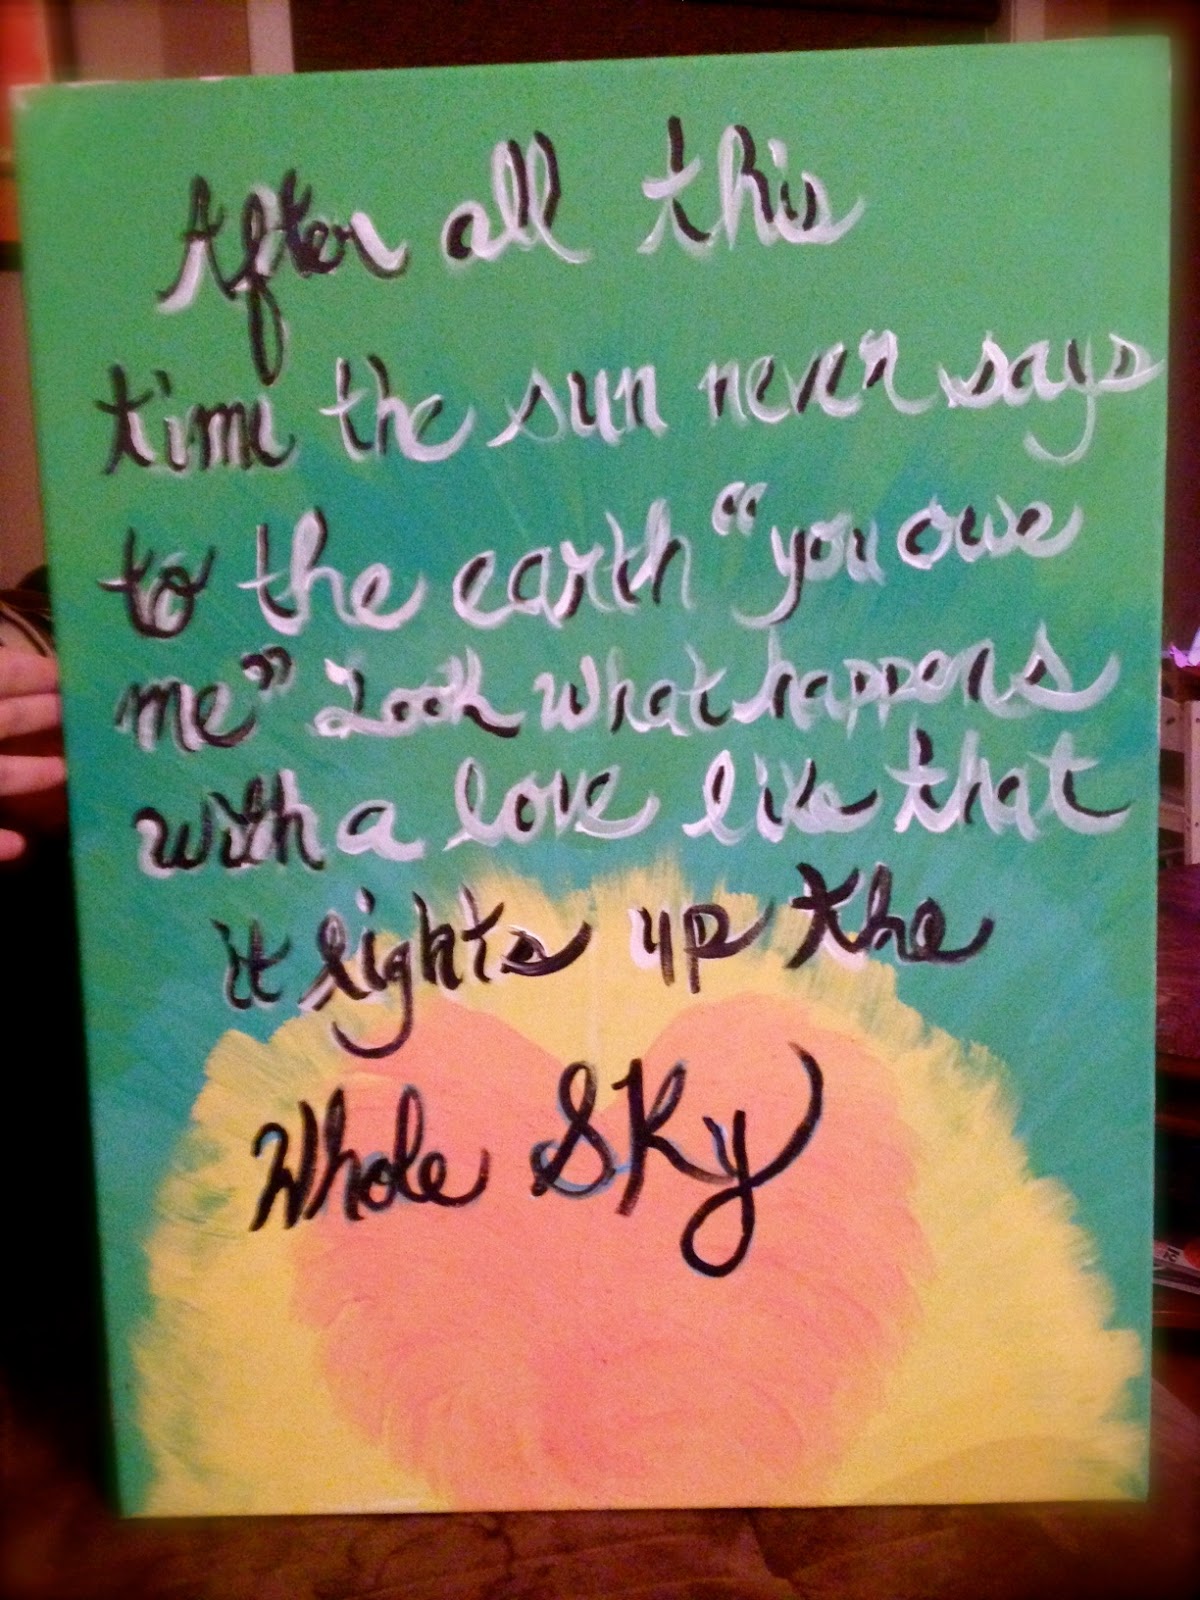 After all this
time the sun never says
to the earth "you owe
me" Look what happens
with a love like that
it lights up the
Whole Sky